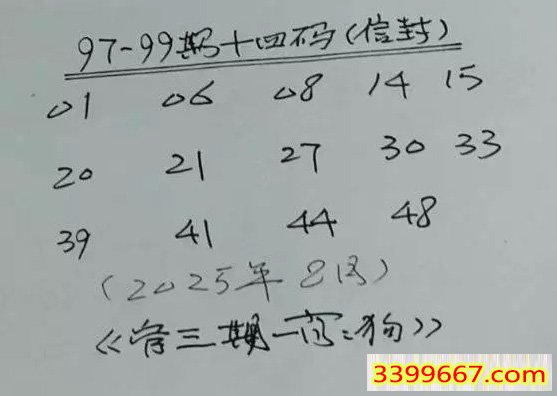 97-99期十四码(信封)
01 06 08 14 15
20 21 27 30 33
39 41 44 48
(2025年8月)
《管三期一肖:狗》
3399667.com